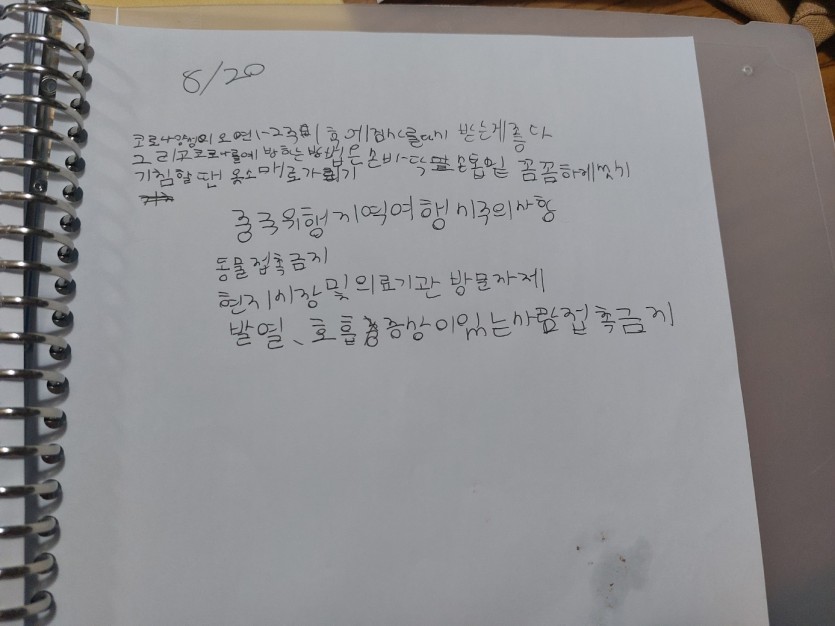 8/20
코로나양성이 오면 1~2주일 후에 검사를 다시 받는게 좋다
그리고 코로나를 예방하는 방법은 손바닥 팔 손톱밑 꼼꼼하게 씻기
기침할땐 옷소매로 가리기
중국위험지역여행시주의사항
동물접촉금지
현지시장 및 의료기관 방문자제
발열、호흡증상이있는사람접촉금지